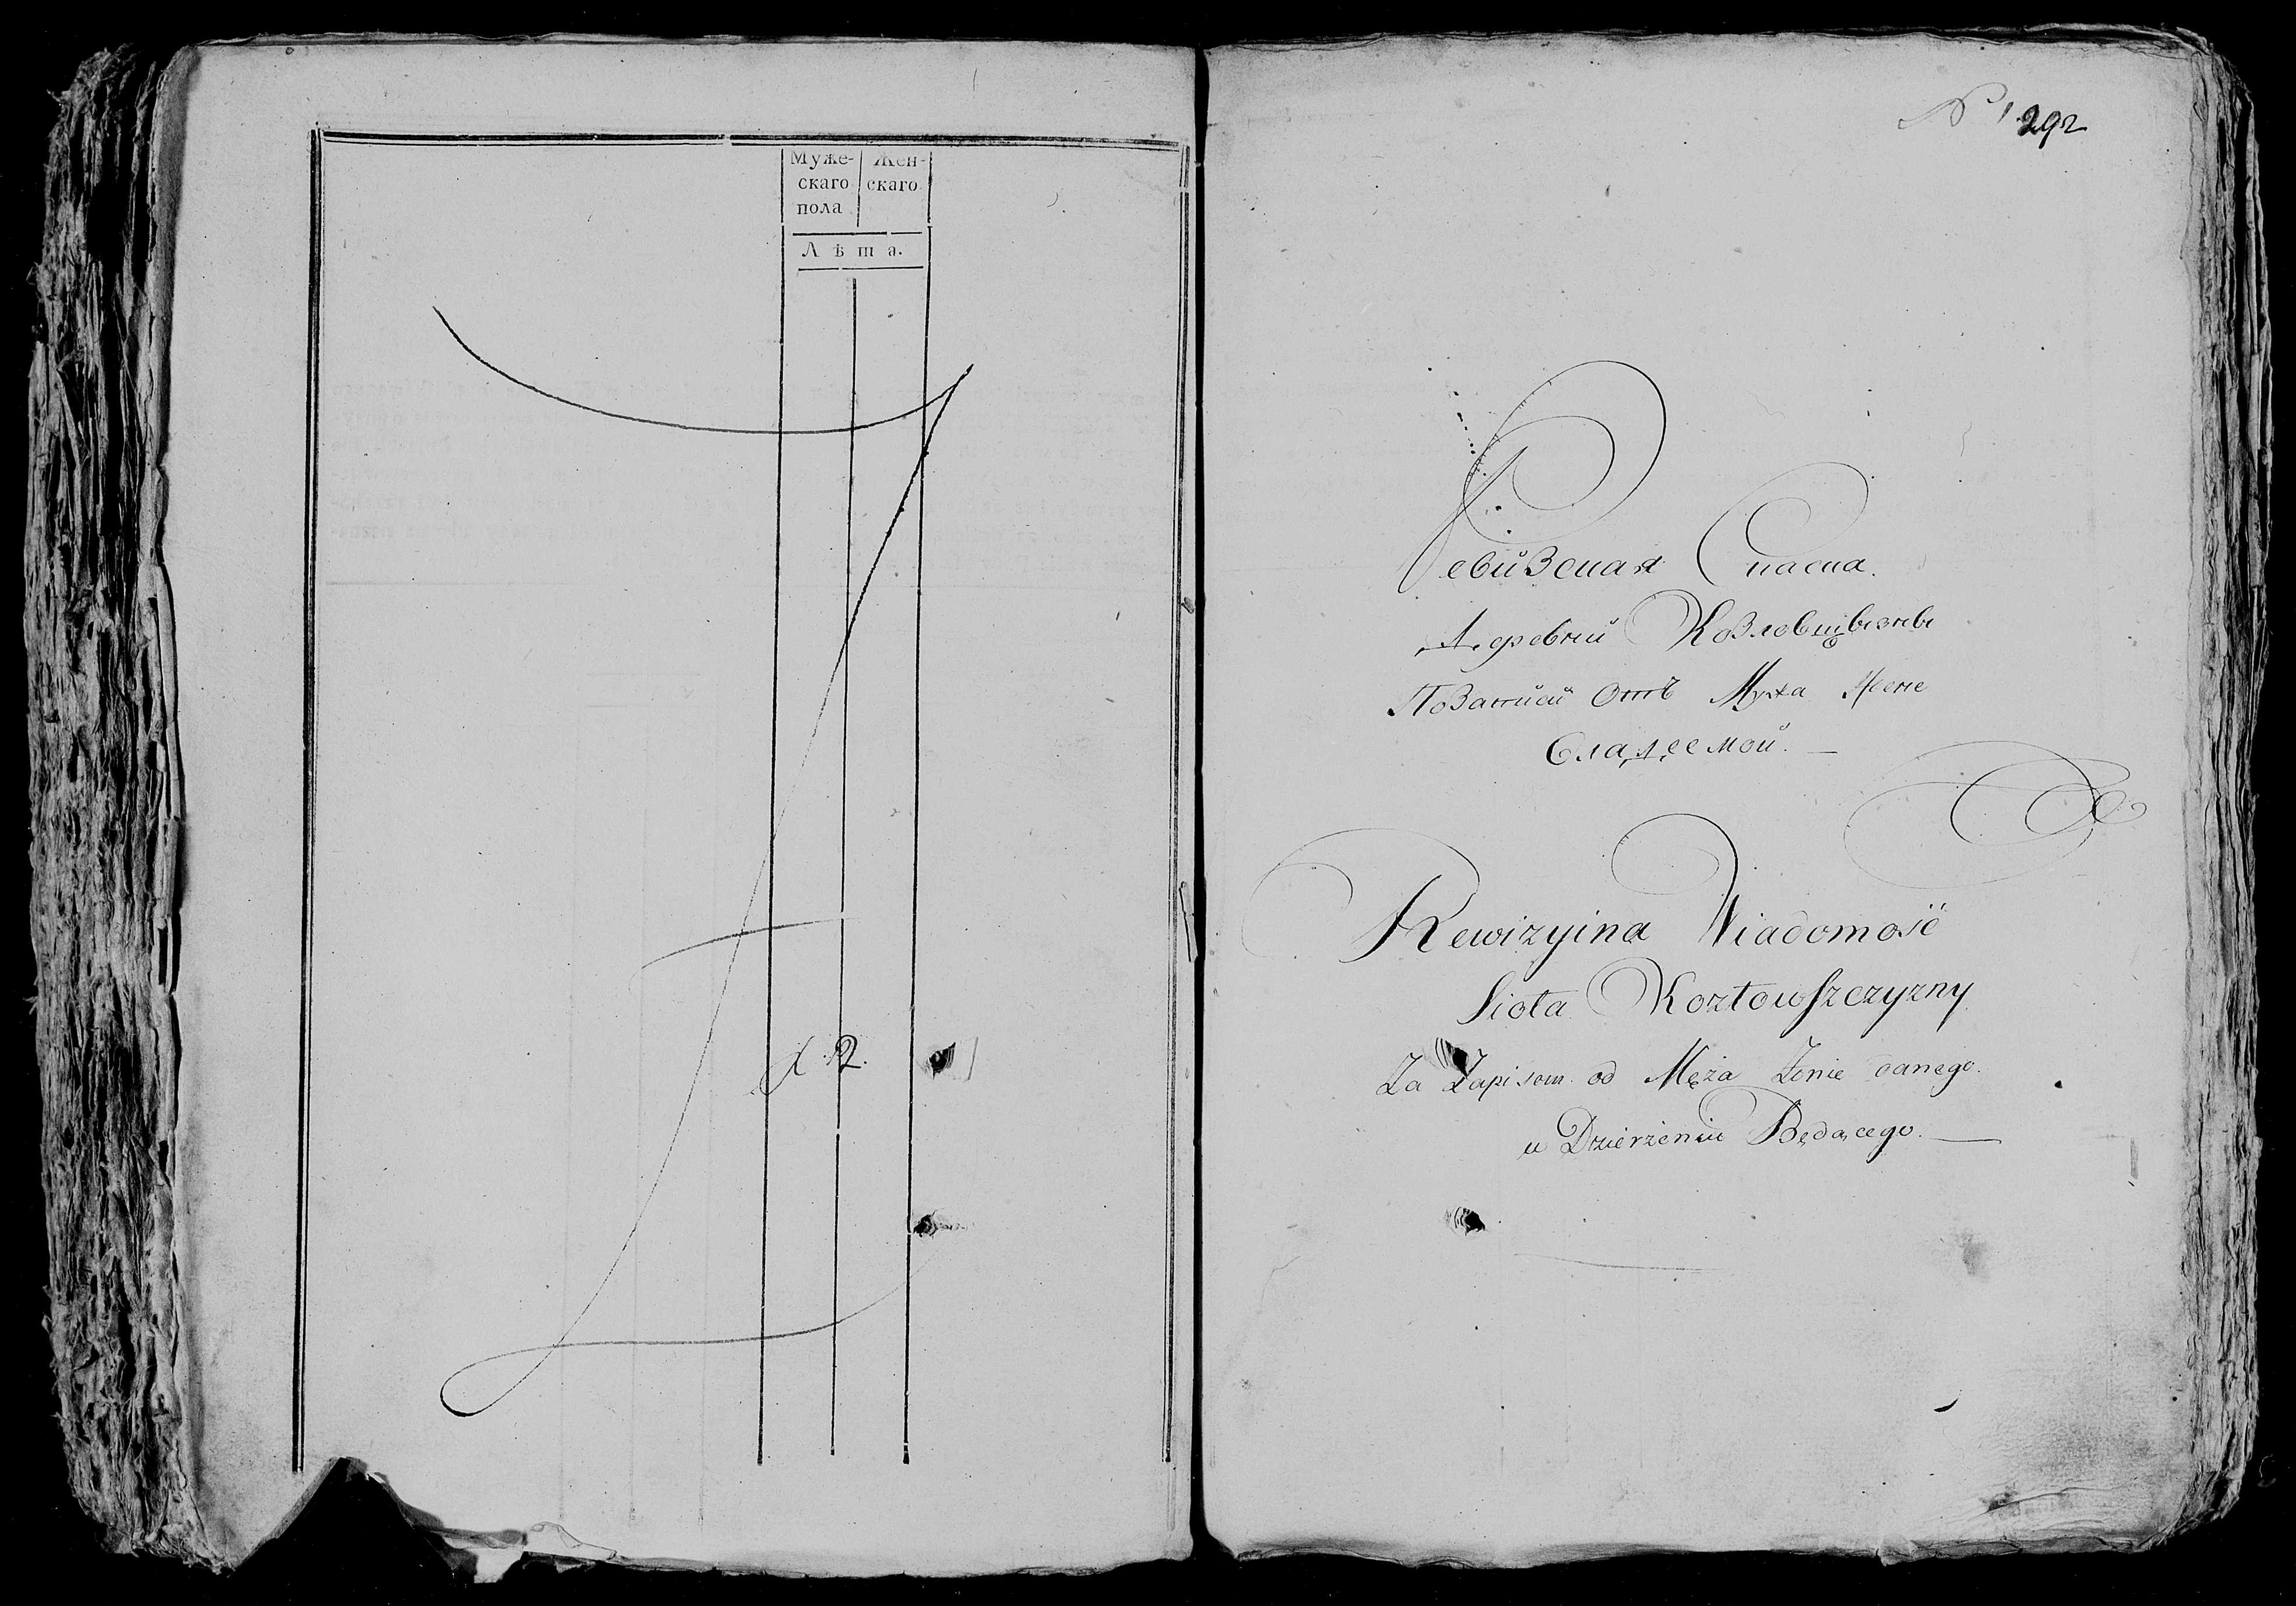 Муже- Жен-
скаго скаго
пола
Лѣта.
292
Ревизская Скаска.
Деревни Козловщызны
По Зaписи Отъ Мужа Жене
владеемой. —
Rewizyina Wiadomość
Sioła Kozłowszczyzny
Za Zapisem od Męża Żonie danego.
w Dzierżeniu Będącego. —